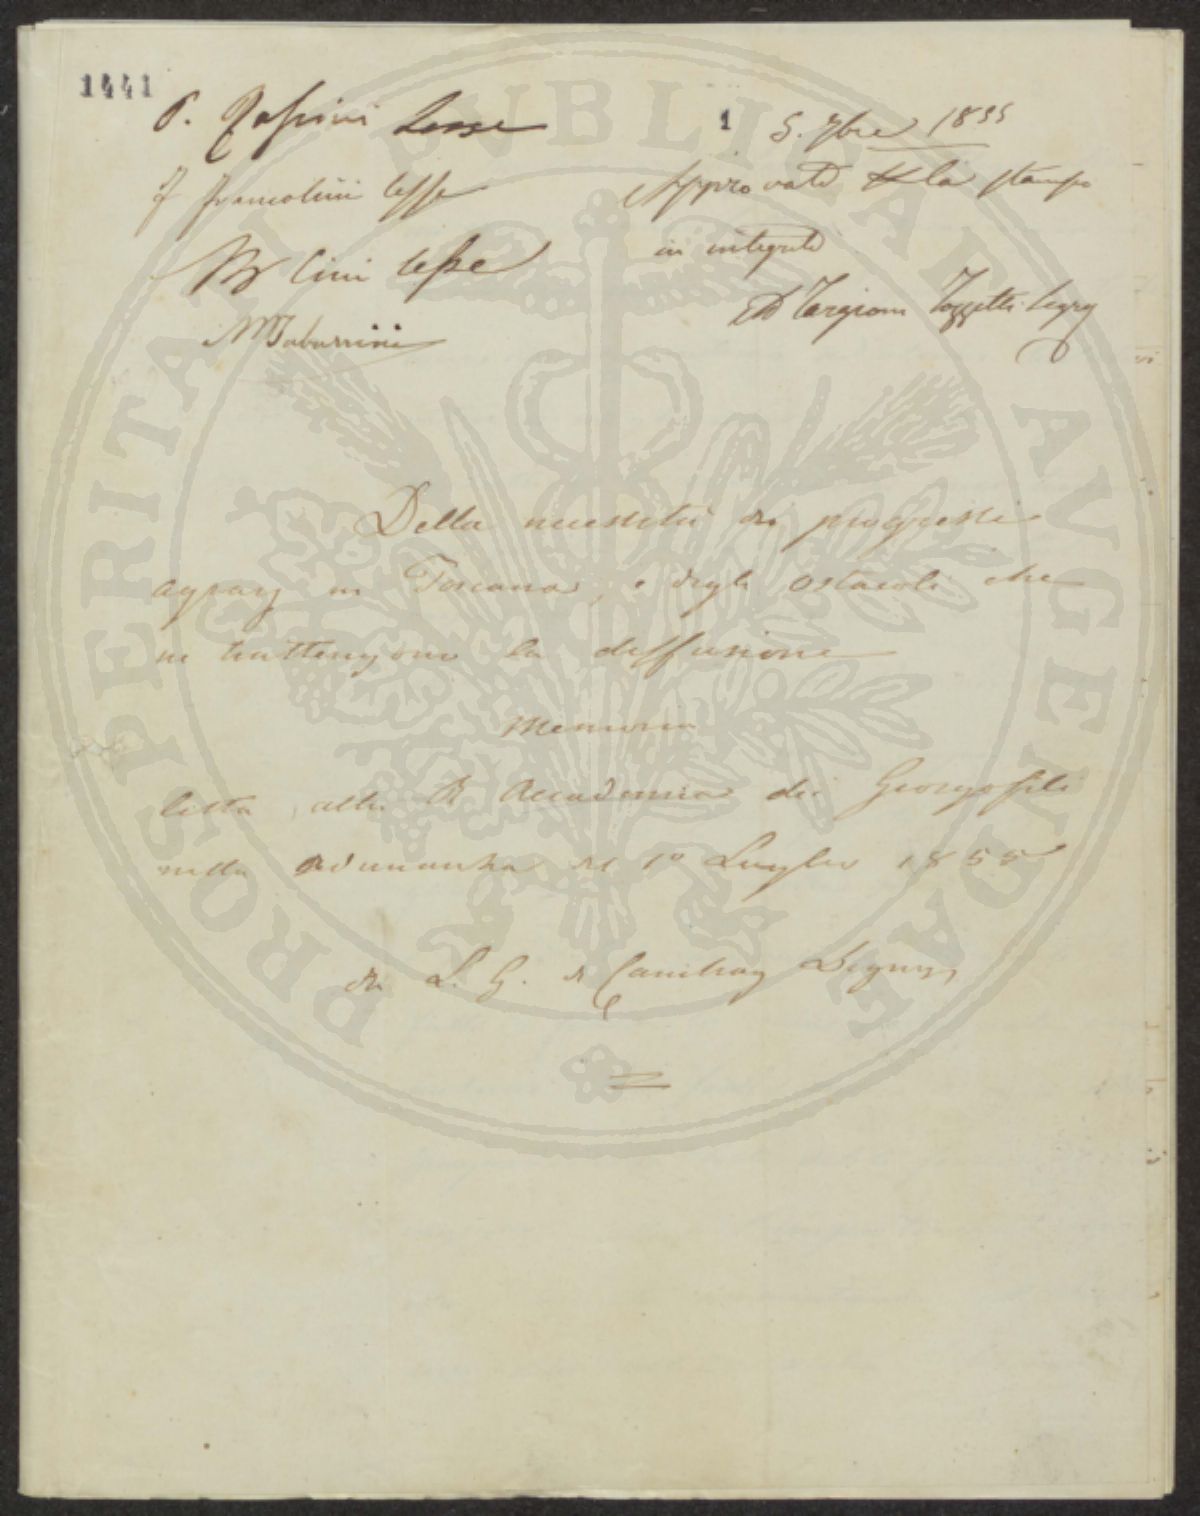 1441
1
5. 7bre 1855
lesse
F. Francolini lesse
Approvato la stampa
Cini lesse
in integrità
MTabarrini
AD Targioni Tozzetti Segr
Della necessità di progressi
agrarj in Toscana, e degli ostacoli che
ne trattengono la diffusione
Memoria
letta alla R Accademia dei Georgofili
nella adunanza del 1º Luglio 1855
da L. G. de Cambray Digny
PROSPERITATI PVBLICAE AVGENDAE